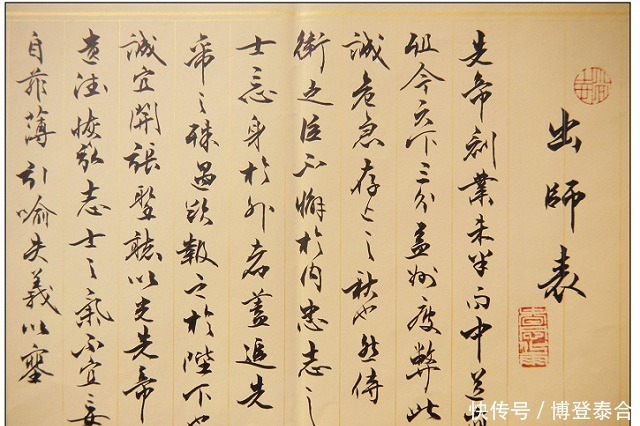 出師表
先帝創業未半而中道
殂今天下三分益州疲弊此
誠危急存亡之秋也然侍
衛之臣不懈於内忠志之
士忘身於外者蓋追先
帝之殊遇欲報之於陛下也
誠宜開張聖聽以光先帝
遺德恢弘志士之氣不宜妄
自菲薄引喻失義以塞
快传号 / 博登泰合